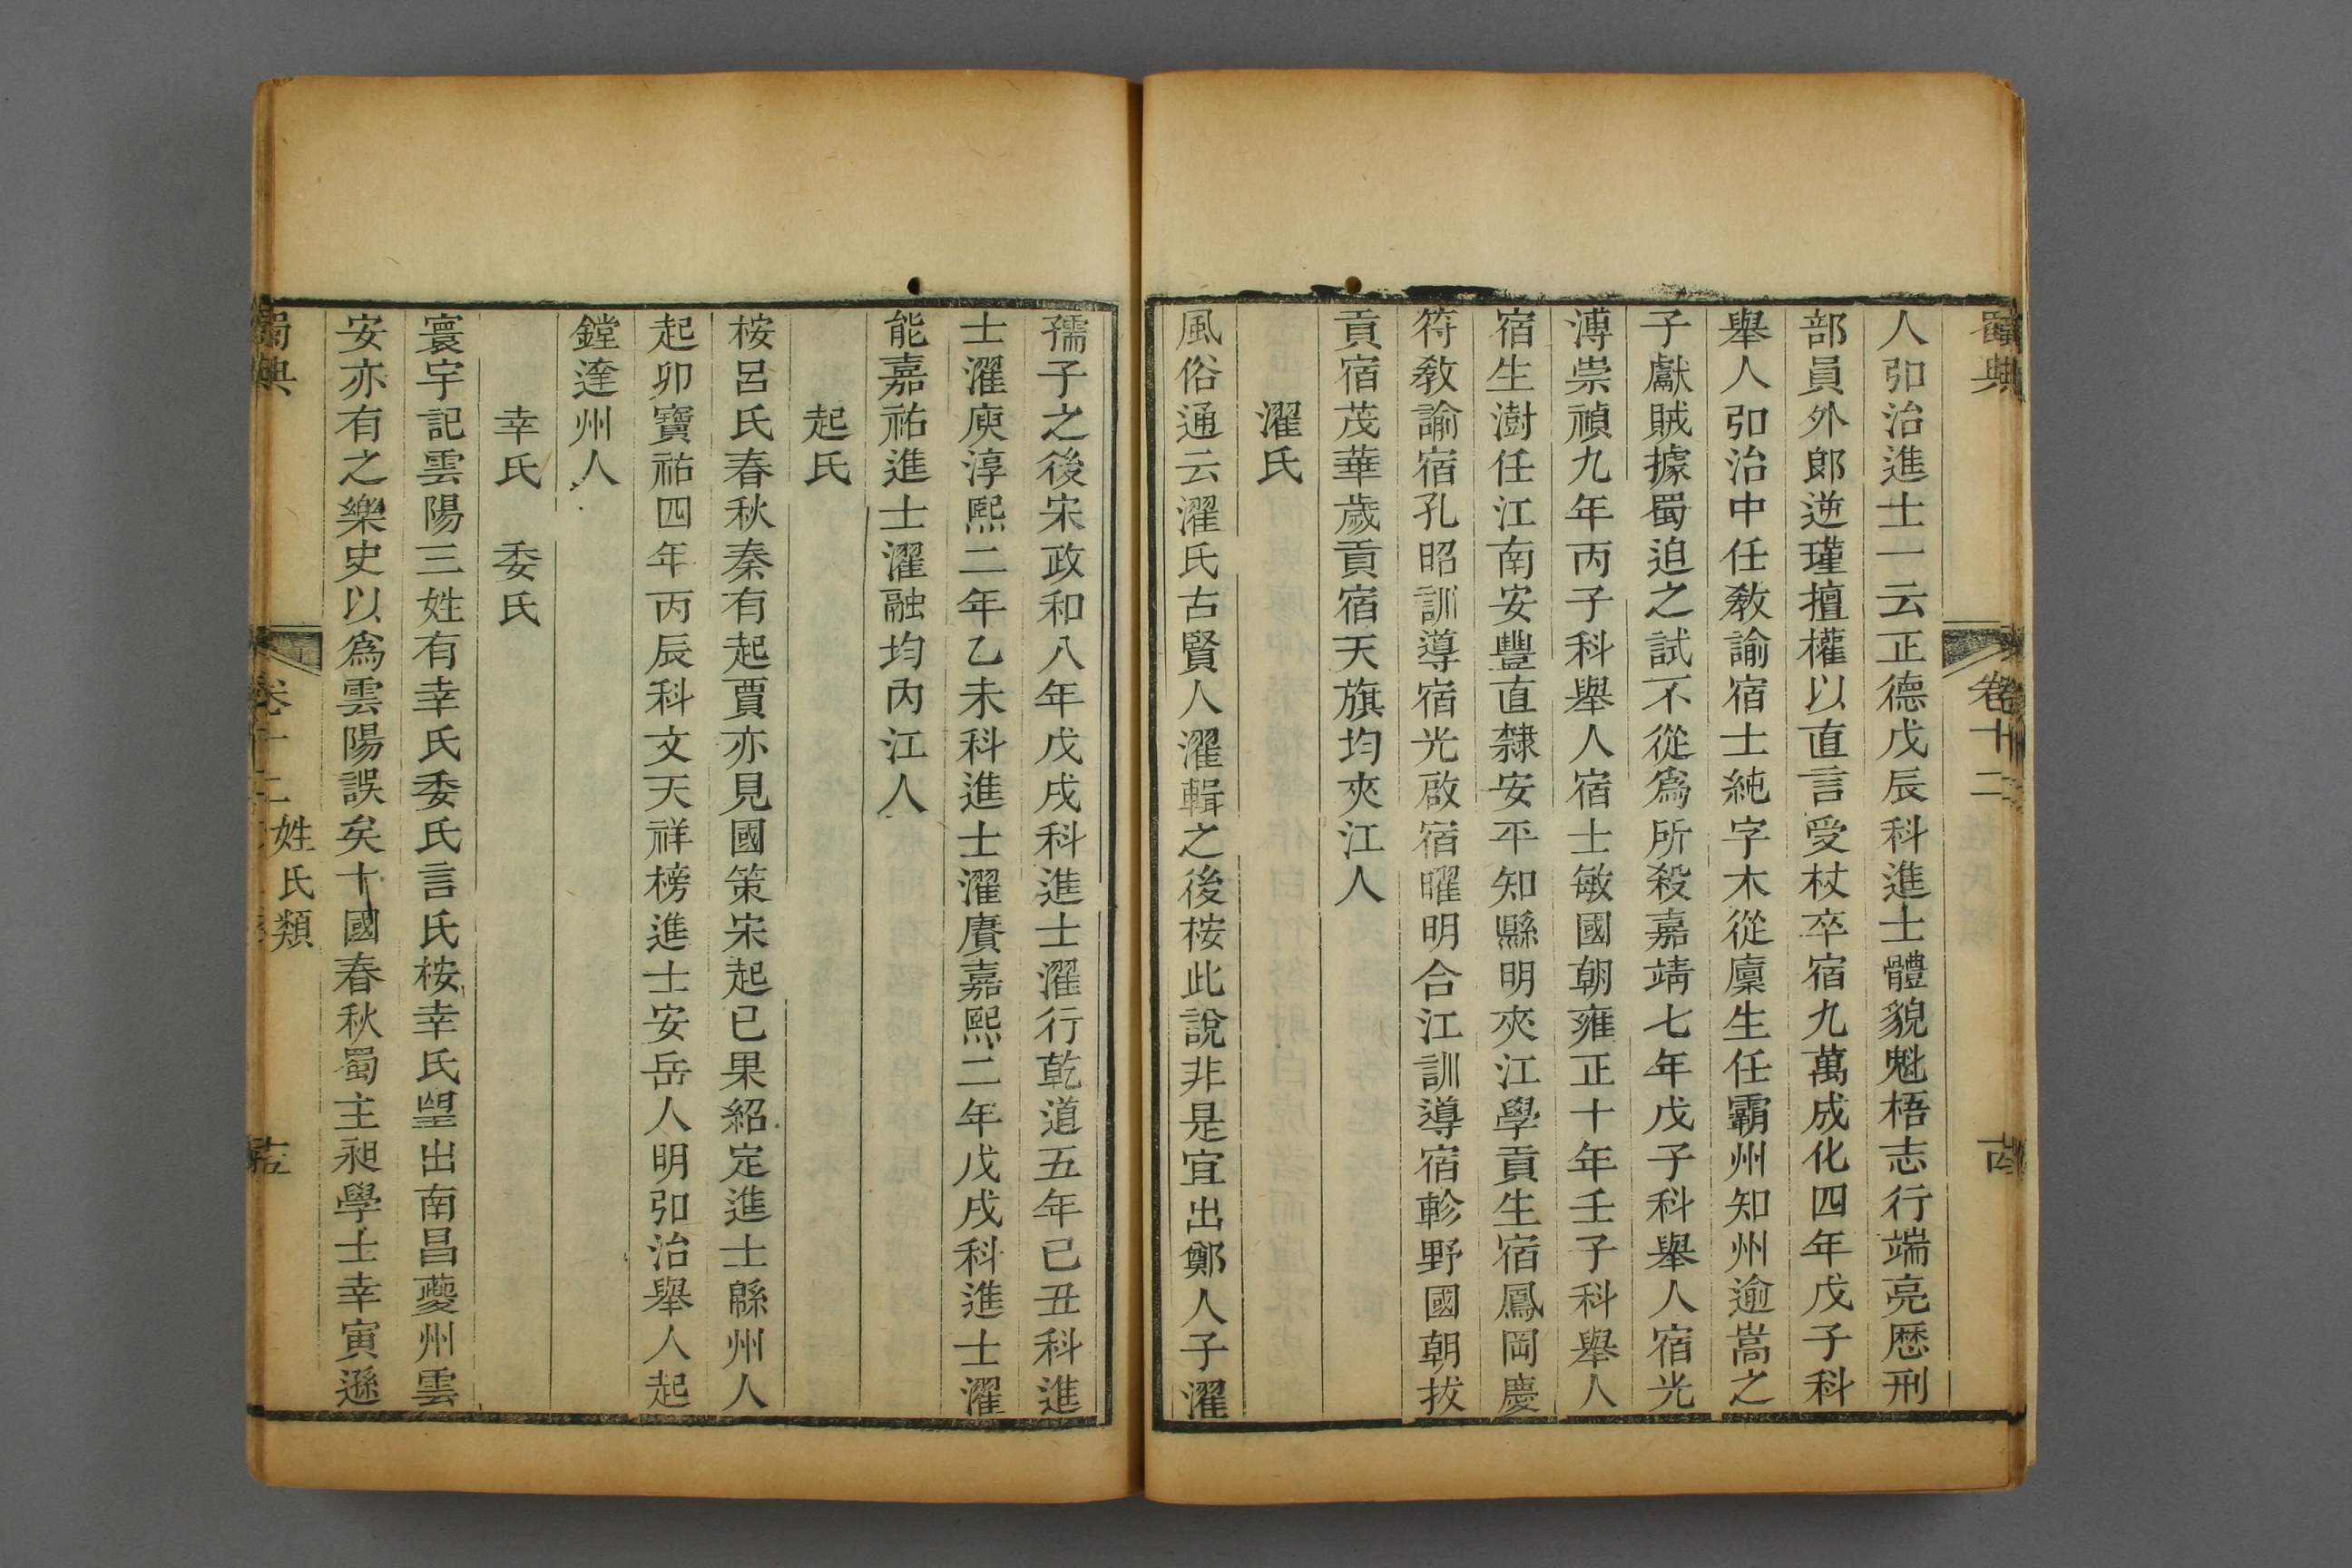 蜀典
卷十二
人弘治進士一云正德戊辰科進士體貌魁梧志行端亮歷刑
部員外郎逆瑾擅權以直言受杖卒宿九萬成化四年戊子科
舉人弘治中任敎諭宿士純字木從廩生任霸州知州逾嵩之
子獻賊據蜀迫之試不從爲所殺嘉靖七年戊子科舉人宿光
溥崇禎九年丙子科舉人宿士敏國朝雍正十年壬子科舉人
宿生澍任江南安豐直隸安平知縣明夾江學貢生宿鳳岡慶
符敎諭宿孔昭訓導宿光啟宿曜明合江訓導宿軫野國朝拔
貢宿茂華歲貢宿天旗均夾江人
濯氏
風俗通云濯氏古賢人濯輯之後桉此說非是宜出鄭人子濯
孺子之後宋政和八年戊戌科進士濯行乾道五年己丑科進
士濯庾淳熙二年乙未科進士濯賡嘉熙二年戊戌科進士濯
能嘉祐進士濯融均內江人
起氏
桉呂氏春秋秦有起賈亦見國策宋起已果紹定進士緜州人
起卯寶祐四年丙辰科文天祥榜進士安岳人明弘治舉人起
鏜達州人
幸氏 委氏
寰宇記雲陽三姓有幸氏委氏言氏桉幸氏望出南昌夔州雲
安亦有之樂史以爲雲陽誤矣十國春秋蜀主昶學士幸寅遜
蜀典
卷十二 姓氏類